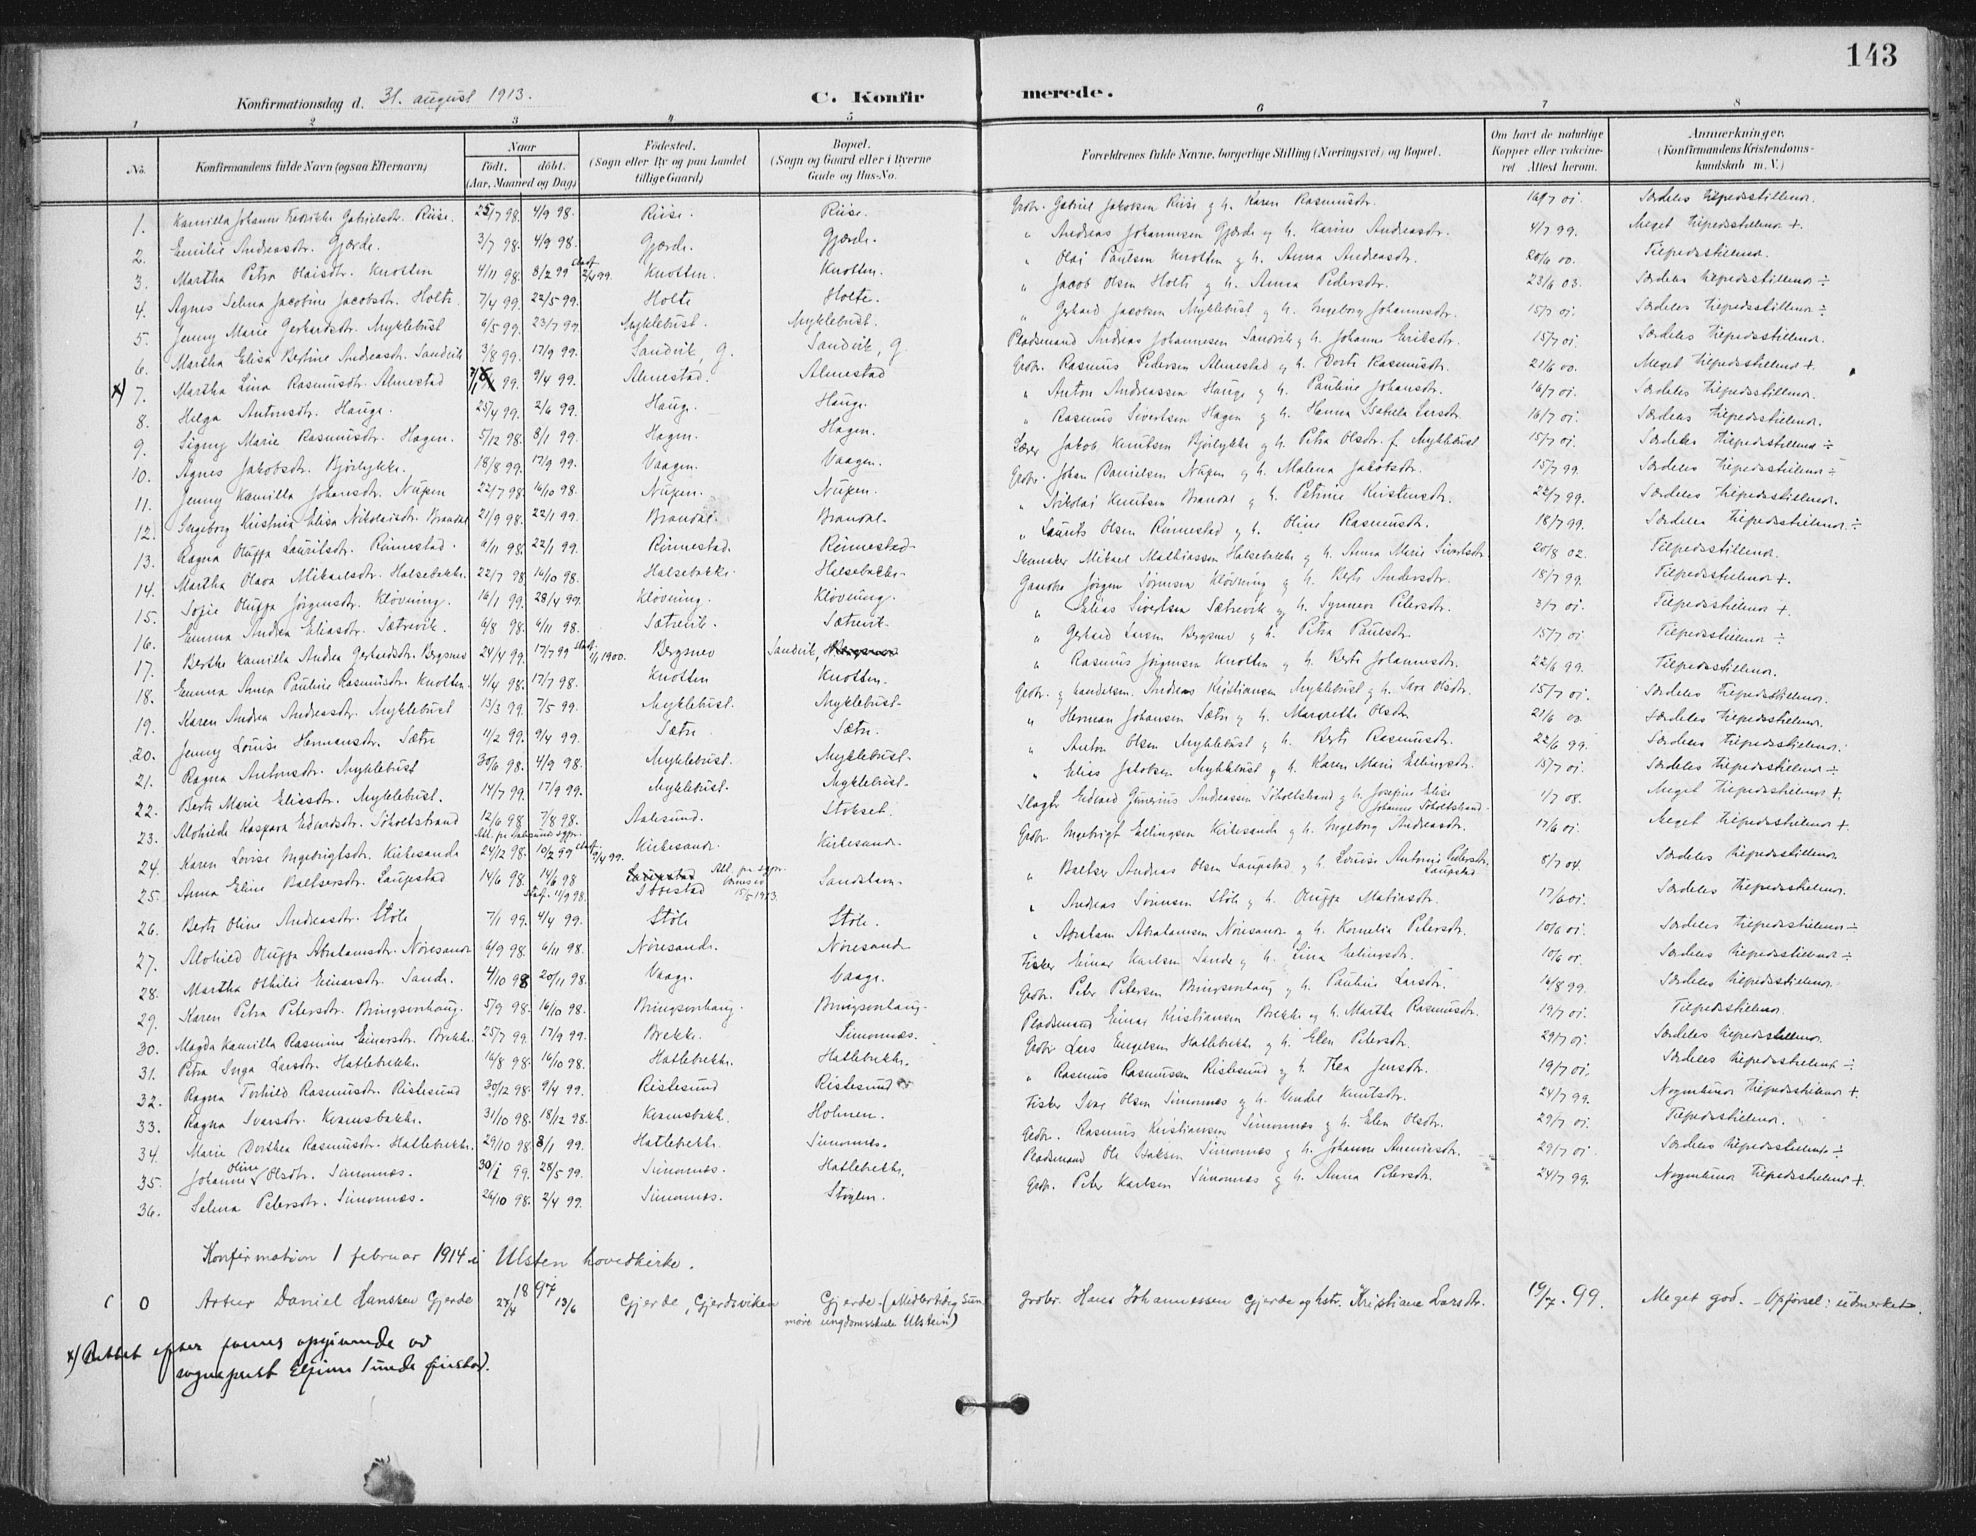 143
Konfirmationsdag d. 31. august 1913. C. Konfirmerede.
1 2 3 4 5 6 7 8
No. Konfirmandens fulde Navn (ogsaa Efternavn) Naar født. døbt. (Aar, Maaned og Dag) Fødested. (Sogn eller By og paa Landet tillige Gaard) Bopæl. (Sogn og Gaard eller i Byerne Gade og Hus-No. Forældrenes fulde Navne, borgerlige Stilling (Næringsvei) og Bopæl. Om havt de naturlige Kopper eller vaccineret Attest herom. Anmerkninger. (Konfirmandens Kristendomskundskab m. V.)
1. Kamilla Johanne Fredrikke Gabrielsdtr. Riise. 25/7 98. 4/9 98. Riise. Riise. Grdbr. Gabriel Jakobsen Riise og h. Karen Rasmusdtr. 16/7 01. Særdeles tilfredsstillende.
2. Emilie Andreasdtr. Gjærde. 3/7 98. 4/9 98. Gjærde. Gjærde. " Andreas Johannesen Gjærde og h. Karine Andreasdtr. 4/7 99. Meget tilfredsstillende +.
3. Martha Petra Olaisdtr. Knotten 4/11 98. 8/2 99 stadf. 2/4 99. Knotten. Knotten. " Olai Paulsen Knotten og h. Anna Andreasdtr. 20/6 00. Tilfredsstillende.
4. Agnes Selma Jacobine Jacobsdtr. Holte. 7/4 99. 22/5 99. Holte Holte. " Jacob Olsen Holte og h. Anna Pedersdtr. 23/6 03. Særdeles tilfredsstillende ÷
5. Jenny Marie Gerhardsdtr. Myklebust 6/5 99. 23/7 99. Myklebust. Myklebust. " Gerhard Jacobsen Myklebust og h. Ingeborg Johannesdtr. 15/7 01. Særdeles tilfredsstillende ÷
6. Martha Elisa Bertine Andreasdtr. Sandvik 3/8 99. 17/9 99. Sandvik, G. Sandvik, G. Pladsmand Andreas Johannesen Sandvik og h. Johanne Eriksdtr. 15/7 01. Særdeles tilfredsstillende.
x) 7. Martha Lina Rasmusdtr. Almestad 99. 9/4 99. Almestad. Almestad Grdbr. Rasmus Pedersen Almestad og h. Dorte Rasmusdtr. 21/6 00. Meget tilfredsstillende +.
8. Helga Antonsdtr. Hauge. 25/4 99. 2/6 99. Hauge. Hauge. " Anton Andreassen Hauge og h. Pauline Johansdtr. 16/7 01. Særdeles tilfredsstillende.
9. Signy Marie Rasmusdtr. Hagen. 5/12 98. 8/1 99. Hagen. Hagen. " Rasmus Sivertsen Hagen og h. Hanna Isabella Larsdtr. 16/7 01. Særdeles tilfredsstillende.
10. Agnes Jakobsdtr. Bjørlykke. 18/8 99. 17/9 99. Vaagen. Vaagen. Lærer Jakob Knutsen Bjørlykke og h. Petra Olsdtr. f. Myklebust 15/7 01. Særdeles tilfredsstillende ÷
11. Jenny Kamilla Johansdtr. Nupen 22/7 98. 16/10 98. Nupen. Nupen. Grdbr. Johan Danielsen Nupen og h. Malena Jakobsdtr. 15/7 99. Særdeles tilfredsstillende ÷
12. Ingeborg Kristina Elisa Nikolaisdtr. Brandal 21/9 98. 22/1 99. Brandal. Brandal. " Nikolai Knutsen Brandal og h. Petrine Kristensdtr. 22/7 99. Særdeles tilfredsstillende.
13. Ragna Oluffa Lauritsdtr. Rinnestad. 6/11 98. 22/1 99. Rinnestad. Rinnestad. " Laurits Olsen Rinnestad og h. Oline Rasmusdtr. 18/7 99. Særdeles tilfredsstillende ÷
14. Martha Olava Mikaelsdtr. Halsebakke. 22/7 98. 16/10 98. Halsebakke. Halsebakke. Skomaker Mikael Mathiassen Halsebakke og h. Anna Marie Sivertsdtr. 20/8 02. Tilfredsstillende.
15. Sofie Oluffa Jørgensdtr. Kløvning. 16/1 99. 28/4 99. Kløvning. Kløvning. Gaardbr. Jørgen Sørensen Kløvning og h. Berte Andersdtr. 18/7 99. Tilfredsstillende +.
16. Emma Andrea Eliasdtr. Sætrevik. 6/8 98. 6/11 98. Sætrevik. Sætrevik. " Elias Sivertsen Sætrevik og h. Synneve Petersdtr. 3/7 01. Tilfredsstillende +.
17. Berthe Kamilla Andrea Gerhardsdtr. Bergsnev 24/4 99. 17/7 99 stadf. 1/1 1900. Bergsnev Sandvik, Bergsnev " Gerhard Larsen Bergsnev og h. Petra Paulsdtr. 15/7 01. Tilfredsstillende ÷
18. Emma Anna Pauline Rasmusdtr. Knotten. 4/4 98. 17/7 98. Knotten Knotten. " Rasmus Jørgensen Knotten og h. Berte Johannesdtr. 22/6 99. Tilfredsstillende.
19. Karen Andrea Andreasdtr. Myklebust 13/3 99. 7/5 99. Myklebust. Myklebust. Grdbr. og handelsm. Andreas Kristiansen Myklebust og h. Sara Olsdtr. 15/7 01. Særdeles tilfredsstillende.
20. Jenny Louise Hermansdtr. Sætre 11/2 99. 9/4 99. Sætre. Sætre. " Herman Johansen Sætre og h. Margrethe Olsdtr. 21/6 00. Særdeles tilfredsstillende.
21. Ragna Antonsdtr. Myklebust 30/6 98. 4/9 98. Myklebust. Myklebust. " Anton Olsen Myklebust og h. Berte Rasmusdtr. 22/6 99. Særdeles tilfredsstillende.
22. Berte Marie Eliasdtr. Myklebust. 14/7 99. 17/9 99. Myklebust. Myklebust. " Elias Jakobsen Myklebust og h. Karen Marie Ellingsdtr. 15/7 01. Særdeles tilfredsstillende ÷
23. Alvhilde Kaspara Edvardsdtr. Sôholtstrand 12/6 98. 7/8 98. Att. fr. Aalesunds sgpr. Aalesund. Stokset. Slagter Edvard Gunerius Andreassen Soholtstrand og h. Josefine Elise Johanne Soholtstrand. 1/7 08. Meget tilfredsstillende +.
24. Karen Lovise Ingebrigtsdtr. Kirkesande 24/12 98. 10/2 99 stadf. 9/4 99. Kirkesande. Kirkesande. Grdbr. Ingebrigt Ellingsen Kirkesande og h. Ingeborg Andreasdtr. 17/6 01. Meget tilfredsstillende +
25. Anna Eline Baltsersdtr. Laupstad 14/6 98. 14/6 98 Stadf. 11/9 98. Laupstad Søvestad Att. fra sgpr. 15/5 1913. Sandshamn. " Baltser Andreas Olsen Laupstad og h. Louise Antonie Petersdtr. Laupstad 8/7 04. Særdeles tilfredsstillende.
26. Berte Oline Andreasdtr. Støle 7/1 99. 4/4 99. Støle. Støle. " Andreas Simensen Støle og h. Oluffa Matiasdtr. 17/6 01. Særdeles tilfredsstillende.
27. Alvhild Oluffa Abrahamsdtr. Nøresande 6/9 98. 6/11 98. Nøresande. Nøresande " Abraham Abrahamsen Nøresande og h. Kornelia Petersdtr. 10/6 01. Særdeles tilfredsstillende ÷
28. Martha Othilie Einarsdtr. Sande. 4/10 98 20/11 98. Vaage. Vaage. Fisker Einar Karlsen Sande og h. Lina Ellingsdtr. 10/6 01. Særdeles tilfredsstillende ÷
29. Karen Petra Petersdtr. Bringsvorhaug. 5/9 98. 16/10 98. Bringsvorhaug. Bringsvorhaug. Grdbr. Peter Petersen Bringsvorhaug og h. Pauline Larsdtr. 16/8 99. Særdeles tilfredsstillende.
30. Magda Kamilla Rasmine Einarsdtr. Brekke. 25/7 99. 17/9 99. Brekke. Simonnæs. Pladsmand Einar Kristiansen Brekke og h. Martha Rasmusdtr. 19/7 01. Tilfredsstillende.
31. Petra Inga Larsdtr. Hatlebrekke. 16/8 98. 16/10 98. Hatlebrekke. Hatlebrekke. Grdbr Lars Engelsen Hatlebrekke og h. Elen Petersdtr. 29/7 01. Særdeles tilfredsstillende.
32. Ragna Torhild Rasmusdtr. Ristesund 30/12 98. 9/4 99. Ristesund Ristesund " Rasmus Rasmussen Ristesund og h. Thea Jensdtr. 19/7 01. Særdeles tilfredsstillende ÷
33. Ragna Ivarsdtr. Kvamsbakke. 31/10 98. 18/12 98. Kvamsbakk. Holmen. Fisker Ivar Olsen Simonnæs og h. Vendel Knutsdtr. 24/7 99. Nogenlunde tilfredsstillende +
34. Marie Dorthea Rasmusdtr. Hatlebrekke. 29/10 98. 8/1 99. Hatlebrekke. Simonnæs. Grdbr. Rasmus Kristiansen Simonnæs og h. Elen Olsdtr. 29/7 01. Tilfredsstillende.
35. Johanne Oline Olsdtr. Simonnæs. 30/1 99. 28/5 99. Simonnæs. Hatlebrekke. Pladsmand Ole Isaksen Simonnæs og h. Johanne Amaniesdtr. 29/7 01. Særdeles tilfredsstillende ÷
36. Selma Petersdtr. Simonnæs. 26/10 98. 2/4 99. Simonnæs. Støylen. Grdbr. Peter Karlsen Simonnæs og h. Anna Petersdtr. 24/7 99. Nogenlunde tilfredsstillende +.
Konfirmation 1 februar 1914 i Ulsten hovedkirke.
0 Artur Daniel Hanssen Gjerde 1897 27/4 13/6 Gjerde, Gjerdsviken Gjerde. (Midlertidig Sunnmøre ungdomsskule Ulstein) Grdbr. Hans Johannessen Gjerde og hstr. Kristiane Larsdtr. 19/7 99. Meget god. - Opførsel: udmerket.
x) Rettet efter opgivende av
sogneprest